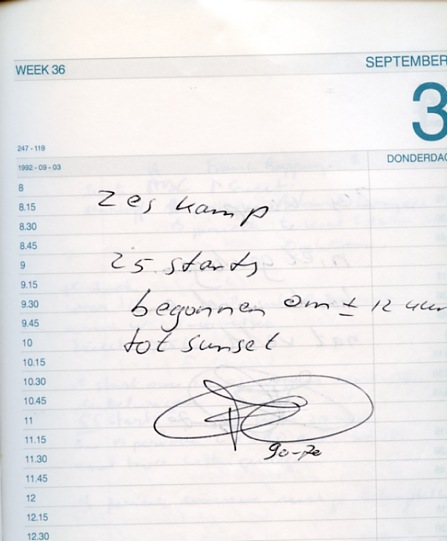 WEEK 36
SEPTEMBER
3
247 - 119
DONDERDAG
1992 - 09 - 03
8
8.15
zes kamp
8.30
8.45
9
25 starts
9.15
9.30
begonnen om ± 12 uur
9.45
10
tot sunset
10.15
10.30
10.45
11
11.15
11.30
11.45
12
12.15
12.30